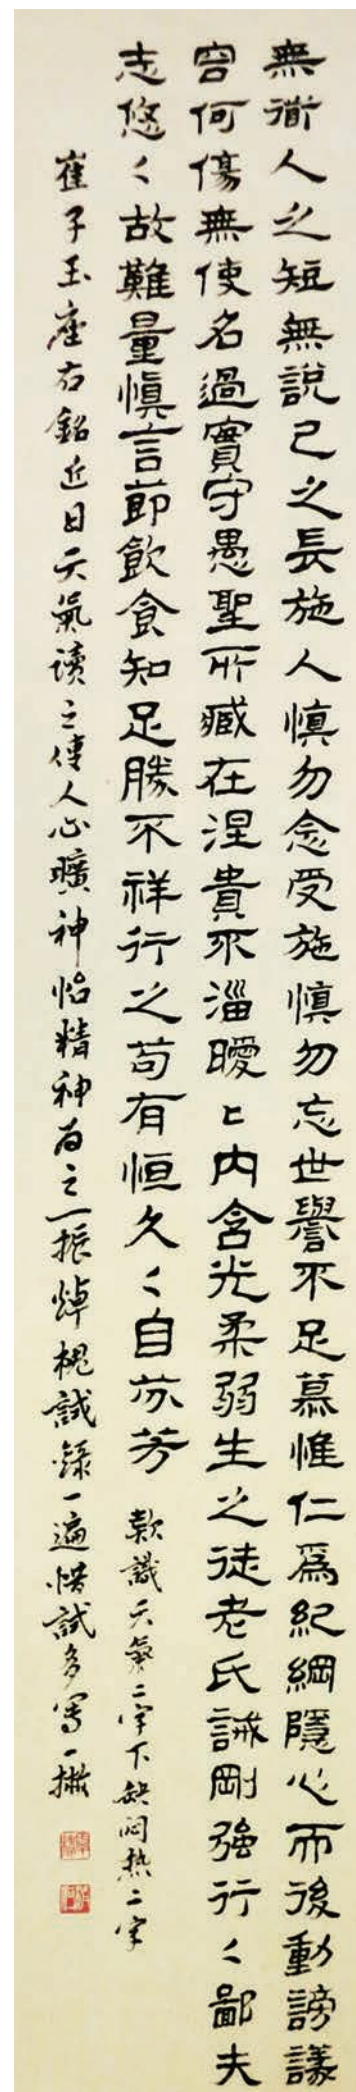 無衜人之短無說己之長施人慎勿念受施慎勿忘世譽不足慕惟仁爲紀綱隱心而後動謗議
容何傷無使名過實守愚聖所臧在涅貴不淄曖〻內含光柔弱生之徒老氏誡剛強行〻鄙夫
志悠〻故難量慎言節飲食知足勝不祥行之苟有恒久〻自芬芳 款識天氣二字下缺悶熱二字
崔子玉座右銘近日天氣讀之使人心曠神怡精神為之一振焯槐試錄一遍惜試多寫一撇